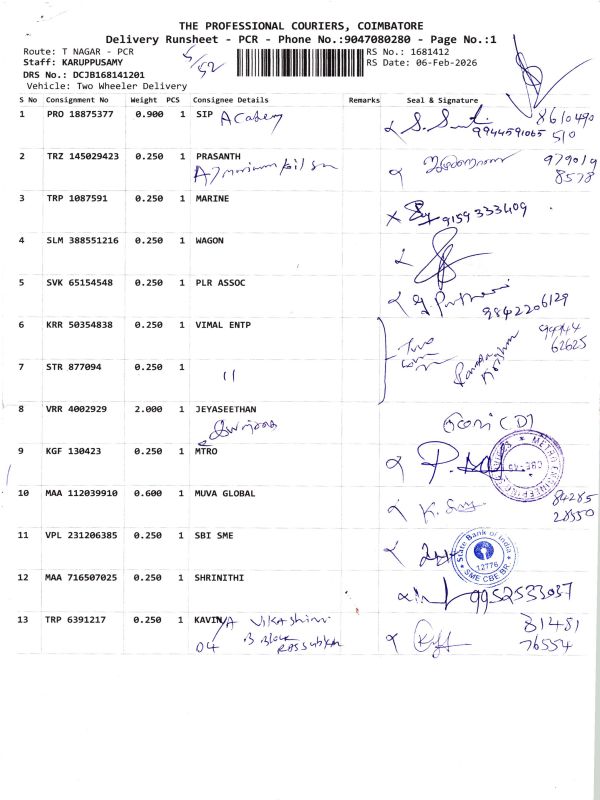 THE PROFESSIONAL COURIERS, COIMBATORE
Delivery Runsheet - PCR - Phone No.:9047080280 - Page No.:1
Route: T NAGAR - PCR
5/52
RS No.: 1681412
Staff: KARUPPUSAMY
RS Date: 06-Feb-2026
DRS No.: DCJB168141201
Vehicle: Two Wheeler Delivery
S No Consignment No Weight PCS Consignee Details Remarks Seal & Signature
1 PRO 18875377 0.900 1 SIP Academy
9944591065
2 TRZ 145029423 0.250 1 PRASANTH
979019
8578
3 TRP 1087591 0.250 1 MARINE
9159333409
4 SLM 388551216 0.250 1 WAGON
5 SVK 65154548 0.250 1 PLR ASSOC
9842206129
6 KRR 50354838 0.250 1 VIMAL ENTP
99944
62625
7 STR 877094 0.250 1 11
8 VRR 4002929 2.000 1 JEYASEETHAN
9 KGF 130423 0.250 1 MTRO
10 MAA 112039910 0.600 1 MUVA GLOBAL
84285
28550
11 VPL 231206385 0.250 1 SBI SME
State Bank of India
12776
SME CBE BR
12 MAA 716507025 0.250 1 SHRINITHI
9952533037
13 TRP 6391217 0.250 1 KAVIN/A Vikashini
04 B Block
81481
76554